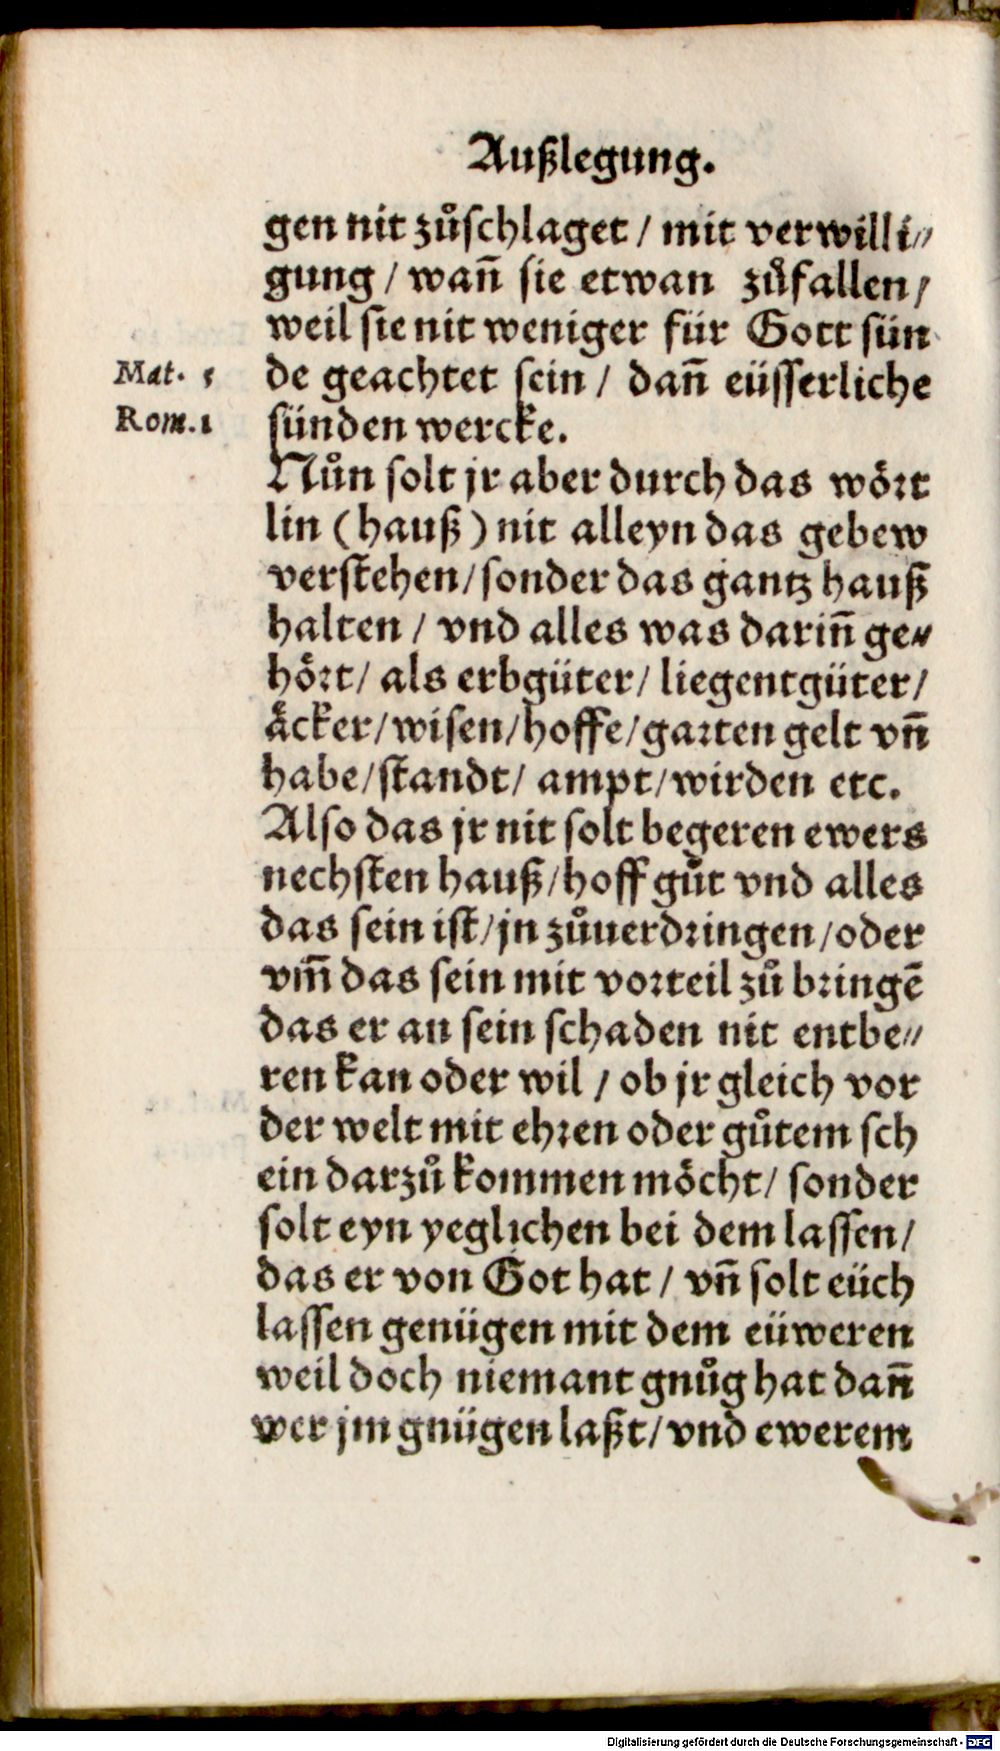 Außlegung.
gen nit zůschlaget / mit verwilli⸗
gung / wañ sie etwan zůfallen /
weil sie nit weniger für Gott sün
Mat. 5
de geachtet sein / dañ eüsserliche
Rom. 1
sünden wercke.
Nůn solt jr aber durch das wört
lin (hauß) nit alleyn das gebew
verstehen / sonder das gantz hauß
halten / vnd alles was dariñ ge⸗
hört / als erbgüter / liegentgüter /
äcker / wisen / hoffe / garten gelt vñ
habe / standt / ampt / wirden etc.
Also das jr nit solt begeren ewers
nechsten hauß / hoff gůt vnd alles
das sein ist / jn zůuerdringen / oder
vm̃ das sein mit vorteil zů bringẽ
das er an sein schaden nit entbe⸗
ren kan oder wil / ob jr gleich vor
der welt mit ehren oder gůtem sch
ein darzů kommen möcht / sonder
solt eyn yeglichen bei dem lassen /
das er von Got hat / vñ solt eüch
lassen genügen mit dem eüweren
weil doch niemant gnůg hat dañ
wer jm gnügen laßt / vnd ewerem
Digitalisierung gefördert durch die Deutsche Forschungsgemeinschaft - DFG